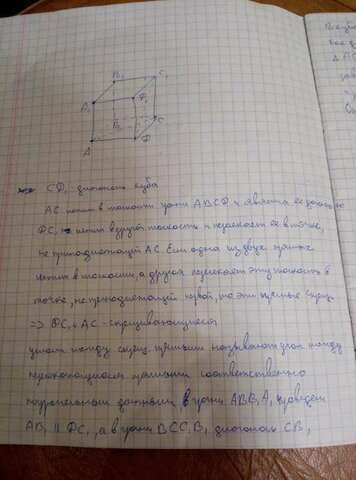 B₁
C₁
A₁
D₁
B
C
A
D
CD₁ диагональ куба
AC лежит в плоскости грани ABCD и является её диагональю
DC₁ лежит в другой плоскости и пересекает её в точке,
не принадлежащей AC. Если одна из двух прямых
лежит в плоскости, а другая пересекает эту плоскость в
точке, не принадлежащей первой, то эти прямые скрещ.
=> DC₁ и AC - скрещивающиеся
углом между скрещ. прямыми называют угол между
пересекающимися прямыми соответственно
параллельным данным в грани ABB₁A₁ проведем
AB₁ || DC₁, а в грани BCC₁B₁ диагональ CB₁